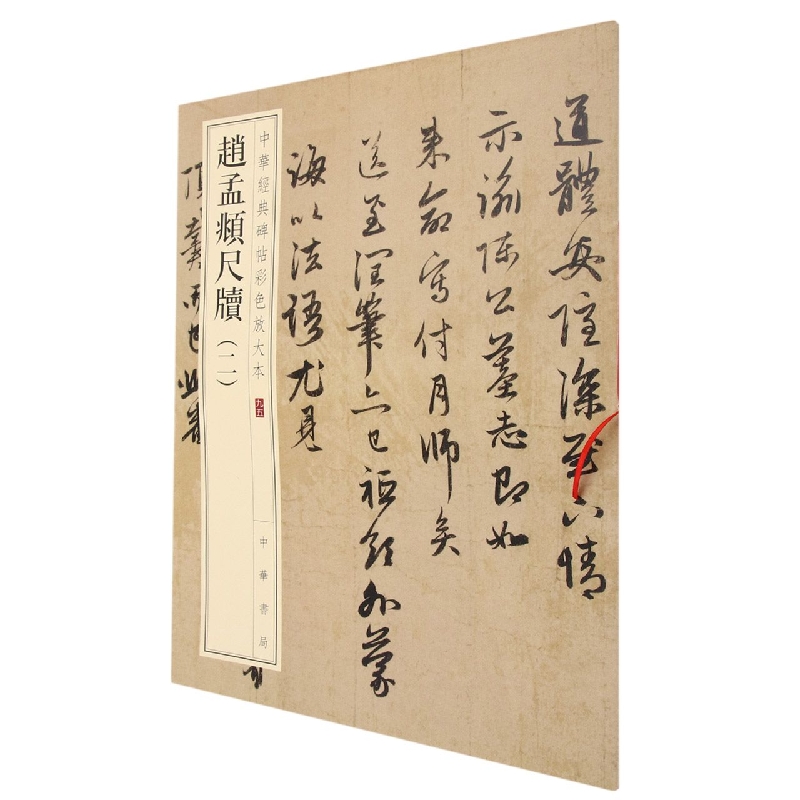 道體安隱深慰下情
示諭陳公墓志即如
來命寫付月師矣
送至潤筆亦已祗領外蒙
誨以法語尤見
中華經典碑帖彩色放大本
九五
中華書局
趙孟頫尺牘（二）